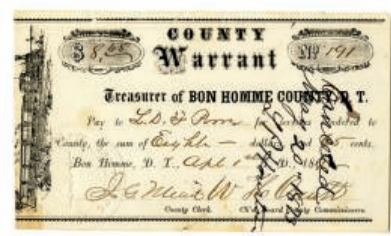 COUNTY
$ 8,65 Warrant No 191
Treasurer of BON HOMME COUNTY, D. T.
Pay to L.D. F. for services rendered to
County, the sum of Eight — dollars and 65 cents.
Bon Homme, D. T., Apl 1 A. D. 18
County Clerk. Ch'n Board County Commissioners.
Cancelled
May 20 1873